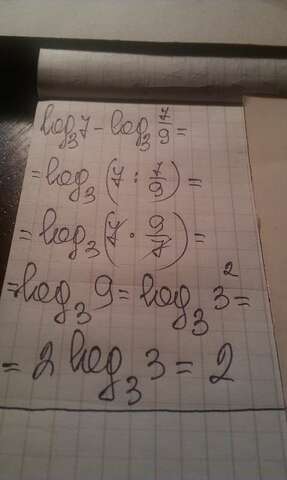 log₃7 - log₃ 7/9 =
= log₃ (7 : 7/9) =
= log₃ (7 · 9/7) =
= log₃ 9 = log₃ 3² =
= 2 log₃ 3 = 2